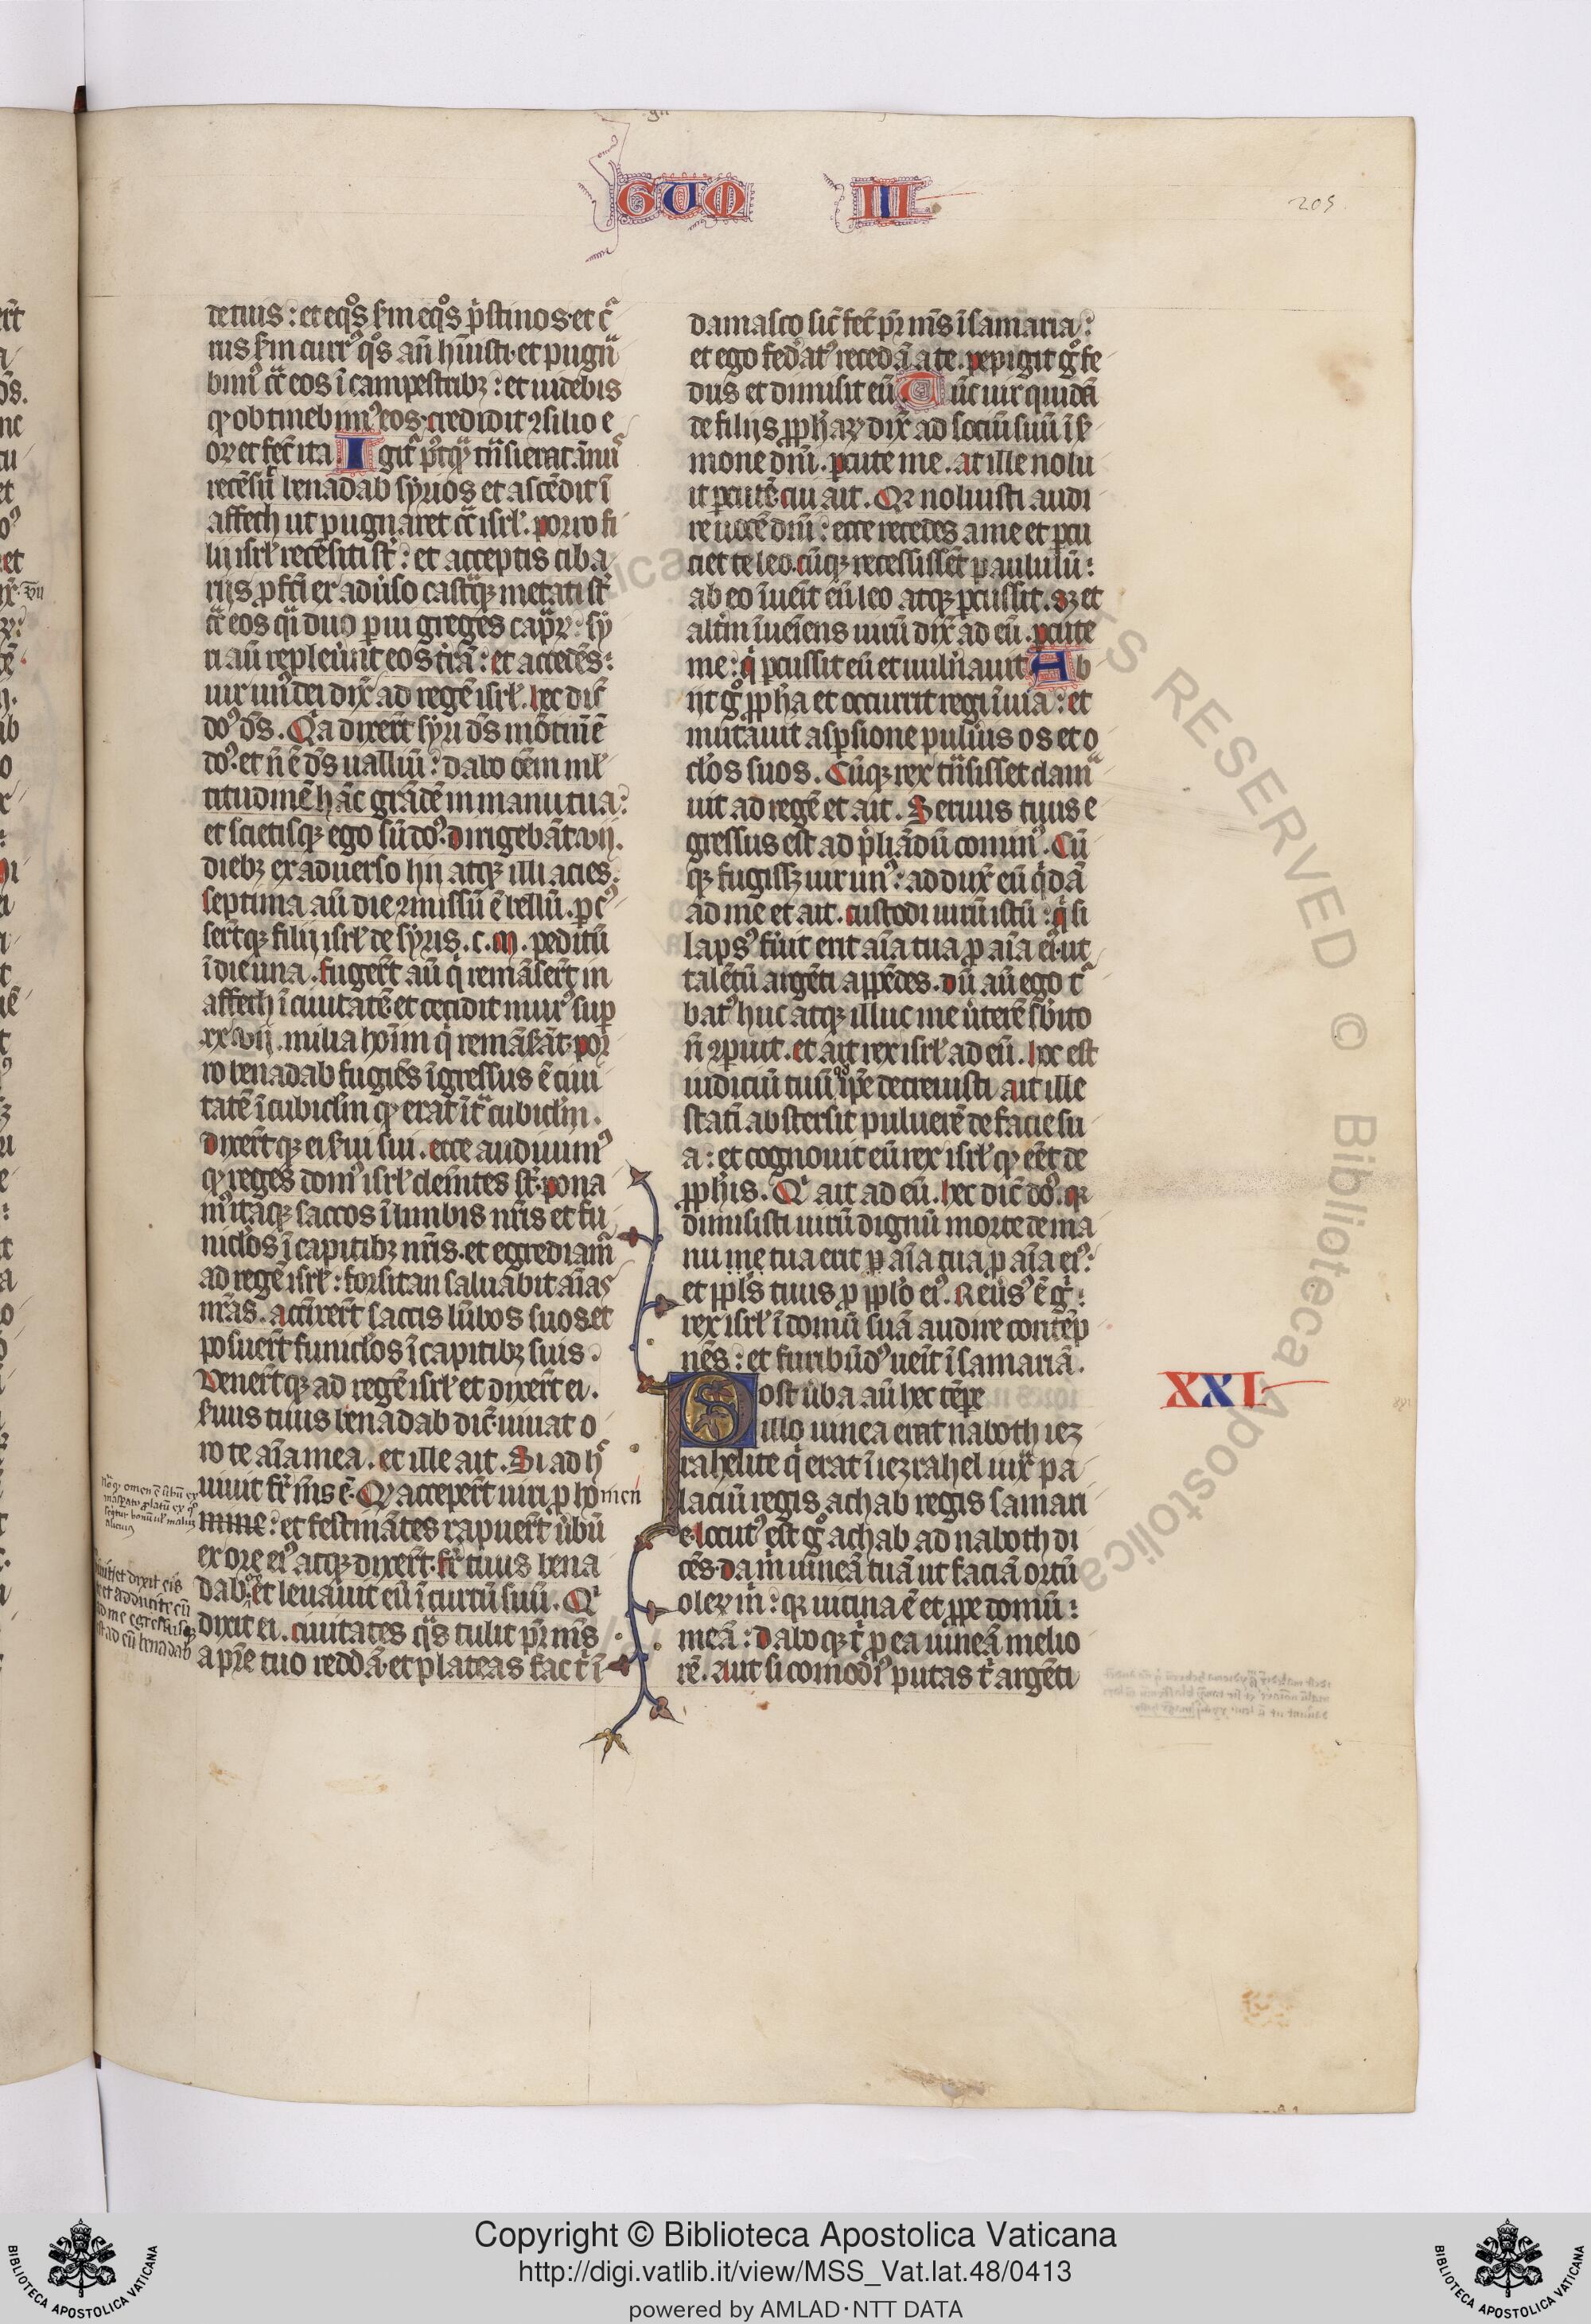 GUM III
205
de tuis : et eqͦs ẜm eqͦs pͥstinos. et cᷓ
rus ẜm currꝰ qͦs an̄ hͣuisti. et pugnᷓ
bimꝰ cͣ eos ī campestribꝫ : et uidebis
ꝙ obtinebimꝰ eos. credidit ꝯsilio e
oꝝ et fec̄ ita Igit᷑ pͦstqᷓ tͣnsierat ānuᷤ
recēsuᷓ benadab syrios et ascēdit ī
affech ut pugnaret cͣ isrł. porro fi
lij isrł recēsiti st᷑ : et acceptis ciba
rijs ꝓfc̄i ex adūso castͣqꝫ metati st᷑
cͣ eos qͣi duo parui greges capͣꝝ : sy
ri aū repleuīt eos trām : et accedēs :
uir unꝰ dei dix̄ ad regē isrł. hec dic̄
dōꝰ dn̄s. Qͥa dixer̄t syri dn̄s mōtiū ē
dōꝰ. et n̄ ē dn̄s uallium : dabo oēm ml̓
titudinē hāc grādē in manu tua :
et scietis qꝫ ego sū dōꝰ. dirigebāt .vij.
diebꝫ ex aduerso hij atqꝫ illi acies.
septima aū die ꝯmissū ē bellū. pcꝰ
ser̄tqꝫ filij isrł de syris .c. m. peditū
ī die una. fuger̄t aū qͥ remāser̄t in
affech ī ciuitatē. et cecidit murꝰ suꝑ
xx.vij. milia hoīm qͥ remāserāt. por
ro benadab fugiēs īgressus ē ciui
tatē ī cubiclm̄ ꝙ erat ītͣ cubiclm̄.
dixer̄tqꝫ ei ẜui sui. ecce audiuimꝰ
ꝙ reges domꝰ isrł clemētes st᷑. pona
mꝰ itaqꝫ saccos ī lumbis nr̄is et fu
niclos ī capitibꝫ nr̄is. et egrediamꝰ
ad regē isrł : forsitan saluabit aīas
nr̄as. accīxer̄t saccis lūbos suos et
posuer̄t funiclos ī capitibꝫ suis.
Vener̄tqꝫ ad regē isrł et dixer̄t ei.
ẜuus tuus benadab dic̄. uiuat o
ro te aīa mea. et ille ait. Si adhᷤ
uiuit fr̄ ms̄ ē. Qͦ acceper̄t uiri ꝓ ho men
mine : et festinātes rapuer̄t ūbū
ex ore eiꝰ atqꝫ dixer̄t. fr̄ tuus bena
dab. et leuauit eū ī currū suū. Qͥ
dixit ei. ciuitates qͣs tulit pr̄ ms̄
a pr̄e tuo reddā. et plateas fac tͥ ī
damasco sic̄ fec̄ pr̄ ms̄ ī samaria :
et ego federatꝰ recedā a te. pepigit gͦ fe
dus et dimisit eū Tūc uir quidā
de filijs ꝓph̄aꝝ dix̄ ad sociū suū ī ẜ
mone dn̄i. ꝑcute me. at ille nolu
it ꝑcutē. cui ait. Qꝛ noluisti audi
re uocē dn̄i : ecce recedes a me et ꝑcu
ciet te leo. cūqꝫ recessisset paululū :
ab eo īuenit eū leo atqꝫ ꝑcussit. sꝫ et
altm̄ īueniens uirū dix̄ ad eū. ꝑcute
me : qͥ ꝑcussit eū et uulnauit Ab
ijt gͦ ꝓph̄a et occurrit regi ī uia : et
mutauit asꝑsione puluis os et o
clos suos. Cūqꝫ rex tͣnsisset clamᷓ
uit ad regē et ait. Seruus tuus e
gressus est ad pͥliādū cominꝰ. Cū
qꝫ fugissꝫ uir unꝰ : addux̄ eū qͥdā
ad me et ait. custodi uirū istū : qͥ si
lapsꝰ fuit erit aīa tua ꝓ aīa eiꝰ. ut
talētū argēti appēdes. dū aū ego tᷓ
batꝰ huc atqꝫ illuc me ūterē sbito
n̄ ꝯꝑuit. et ait rex isrł ad eū. hoc est
iudiciū tuū qͦ ip̄e decreuisti. at ille
statī abstersit puluerē de facie su
a : et cognouit eū rex isrł ꝙ eēt de
ꝓph̄is. Qͥ ait ad eū. hec dic̄ dōꝰ. qꝛ
dimisisti uirū dignū morte de ma
nu me tua erit ꝓ aīa tua ꝓ aīa eiꝰ :
et ppl̓s tuus ꝓ ppl̓o eiꝰ. Reūsꝰ ē gͥ :
rex isrł ī domū suā audire contēp
nēs : et furibūdꝰ uēit ī samariā.
Post ūba aū hec tēpe
illo uinea erat naboth iez
rahelite qͥ erat ī iezrahel iuxͣ pa
laciū regis achab regis samari
e. locutꝰ est gͦ achab ad naboth di
cēs. da mͥ uineā tuā ut faciā ortū
oleꝝ mͥ : qꝛ uicina ē et ꝓpe domū :
meā : dabo qꝫ tͥ ꝓ ea uineā melio
rē. Aut si comodiꝰ putas tͥ argēti
XXI
dixit eis
et adducite eū
ad me egressus
ad eū benadab
Copyright © Biblioteca Apostolica Vaticana
http://digi.vatlib.it/view/MSS_Vat.lat.48/0413
powered by AMLAD·NTT DATA
BIBLIOTECA APOSTOLICA VATICANA
BIBLIOTECA APOSTOLICA VATICANA